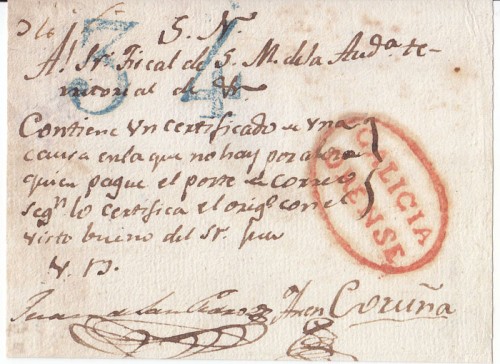 S. N.
34
Al Sr. Fiscal de S. M. de la Auda. te-
rritorial de
Contiene un certificado de una
causa en la que no hay por ahora
quien pague el porte de Correo
segn. lo certifica el origl. con el
visto bueno del Sr. Juez
V. B.
GALICIA
ORENSE
Juan de San Pedro
en Coruña